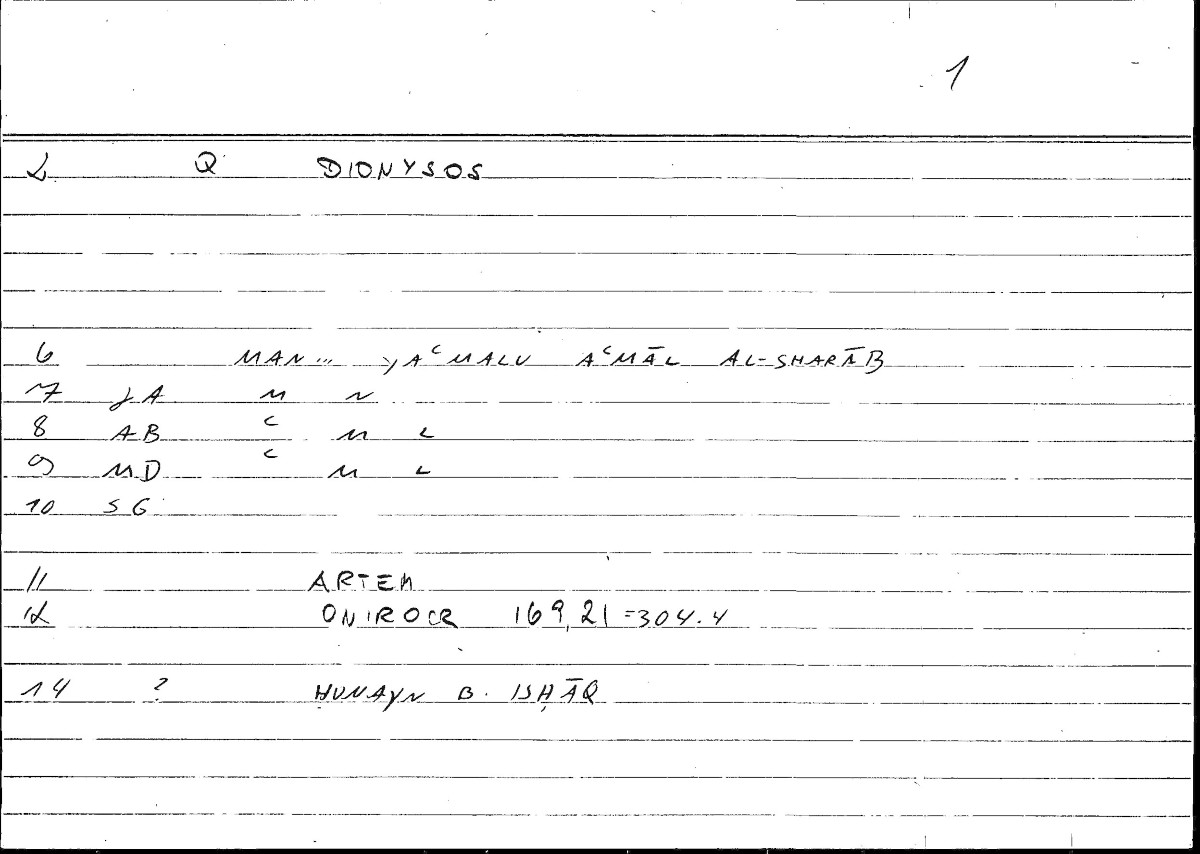 1
2 Q DIONYSOS
6 MAN... YAʿMALU AʿMĀL AL-SHARĀB
7 JA M N
8 AB ʿ M L
9 MD ʿ M L
10 SG
11 ARTEM
12 ONIROCR 169,21=304.4
14 ? ḤUNAYN B. ISḤĀQ